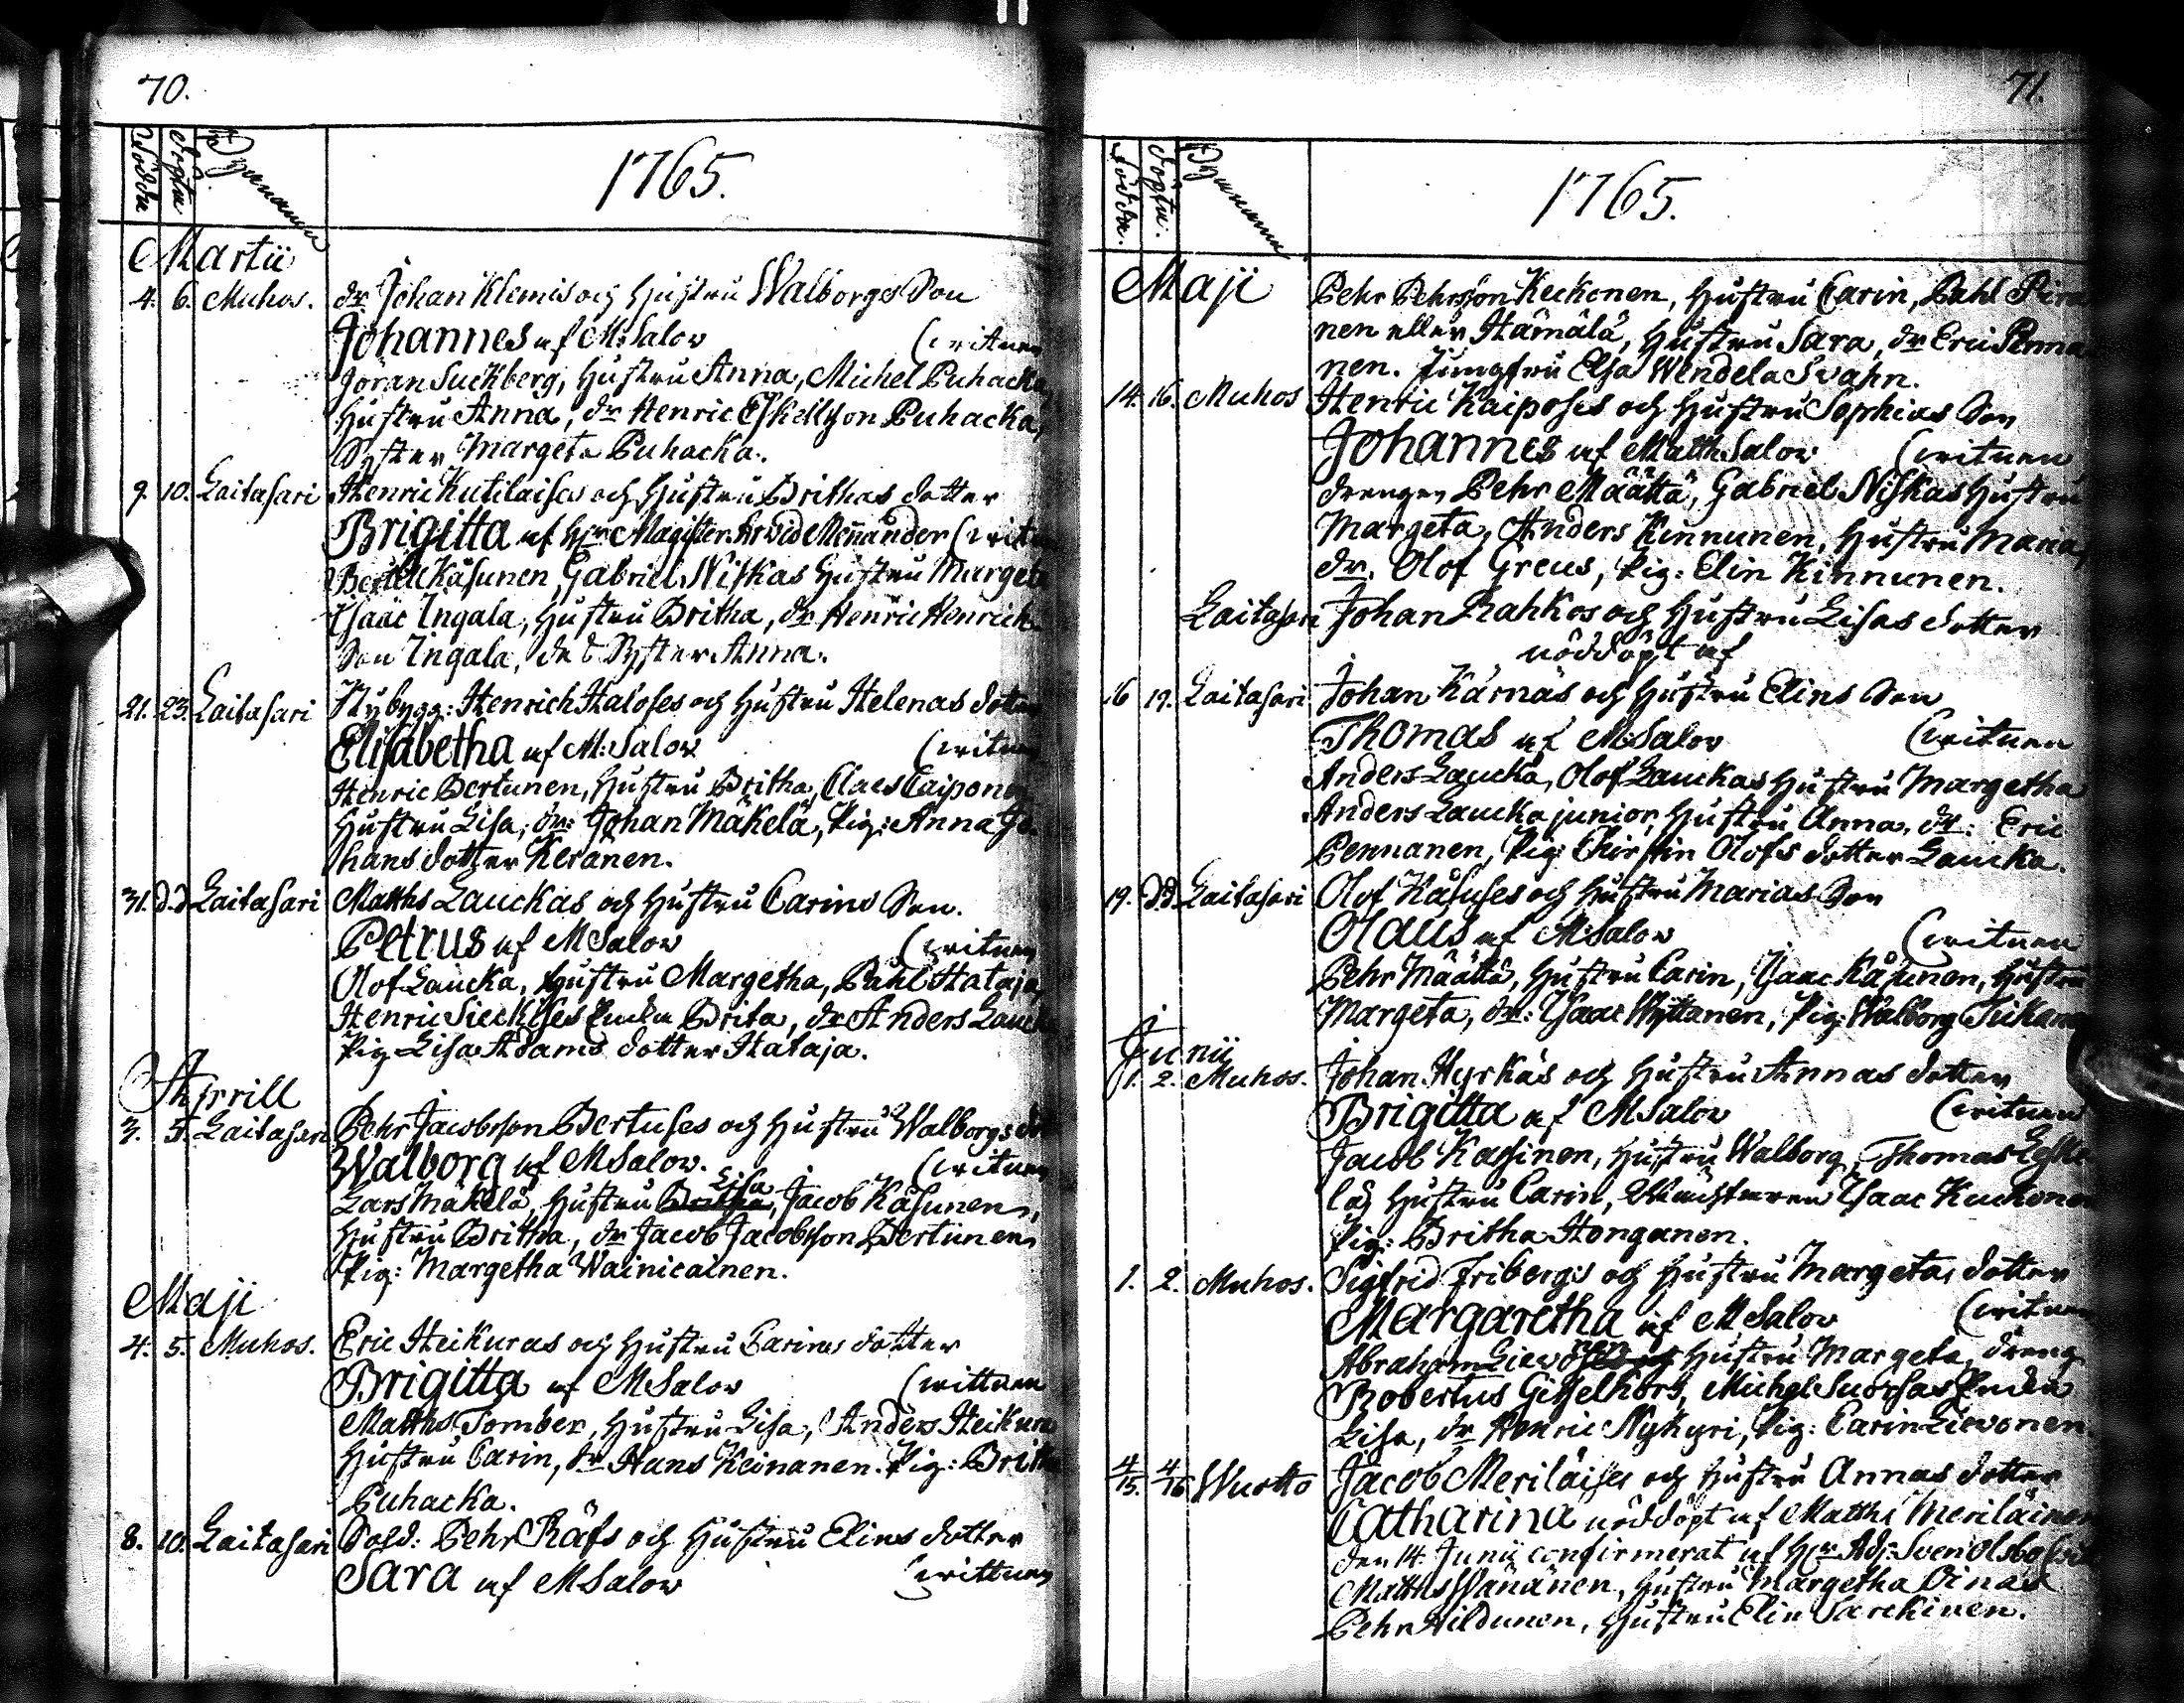 70.
Födde Döpte Bynamn
1765.
Martii
4. 6. Muhos. dr Johan Klemis och Hustru Walborgs Son
Johannes af M: Salov (vitnen
Jöran Suckberg, Hustru Anna, Michel Puhacka,
Hustru Anna, dr Henric Eskellson Puhacka,
Syster Margeta Puhacka.
9. 10. Laitasari Henric Kutilaises och Hustru Brithas dotter
Brigitta af Hr Magister Arvid Mennander (vitn
Bertill Käsunen, Gabriel Niskas Hustru Margeta
Isaac Ingala, Hustru Britha, dr Henric Henrich-
Son Ingala, des Syster Anna.
21. 23. Laitasari Nybygg: Henrich Haloses och Hustru Helenas dotter
Elisabetha af M: Salov (vitnen
Henric Bertunen, Hustru Britha, Claes Caiponen
Hustru Lisa, dr: Johan Mäkelä, Pig: Anna Jo-
hans dotter Keränen.
31. d.d Laitasari Matths Lauckas och Hustru Carins Son.
Petrus af M Salov (vitnen
Olof Laucka, Hustru Margetha, Påhl Hataja,
Henric Sieckises Enka Brita, dr Anders Laucka
Pig Lisa Adams dotter Hataja.
Aprill
3. 5. Laitasari Pehr Jacobsson Bertuses och Hustru Walborgs dr
Walborg af M Salov. (vitnen
Lars Mäkelä, Hustru Britha Lisa, Jacob Käsunen,
Hustru Britha, dr Jacob Jacobsson Bertunen,
Pig: Margetha Wainicainen.
Maji
4. 5. Muhos. Eric Heikuras och Hustru Carins dotter
Brigitta af M Salov (vittnen
Matths Tomber, Hustru Lisa, Anders Heikura
Hustru Carin, dr Hans Keinanen. Pig: Britha
Puhacka.
8. 10. Laitasari Sold: Pehr Räfs och Hustru Elins dotter
Sara af M Salov (vittnen
71.
Födde. Döpte. Bynamn
1765.
Maji Pehr Pehrsson Keckonen, Hustru Carin, Pahl Pira
nen eller Hämälä, Hustru Sara, dr Eric Penna
nen. Jungfru Elsa Wendela Svahn.
14. 16. Muhos Henric Kaiposes och Hustru Sophias Son
Johannes af Matth Salov (vitnen
drengen Pehr Määttä, Gabriel Niskas Hustru
Margeta, Anders Kinnunen, Hustru Maria,
dr. Olof Greus, Pig: Elin Kinnunen.
Laitasari Johan Rahkos och Hustru Lisas dotter
nöddöpt af
16 19. Laitasari Johan Kärnäs och Hustru Elins Son
Thomas af M: Salov (vitnen
Anders Laucka, Olof Lauckas Hustru Margetha
Anders Laucka junior, Hustru Anna, dr: Eric
Pennanen, Pig: Chirstin Olofs dotter Laucka.
19. d.d. Laitasari Olof Käsuses och Hustru Marias Son
Olaus af M: Salov (vitnen
Pehr Määttä, Hustru Carin, Isaac Käsunen, Hustru
Margeta, dr: Isaac Wyttanen, Pig: Walborg Tickanen
Junii
1. 2. Muhos. Johan Hyrkäs och Hustru Annas dotter
Brigitta af M Salov (vitnen
Jacob Kassinen, Hustru Walborg, Thomas Leske
läs Hustru Carin, Isaac Kuckonen
Pig: Britha Honganen.
1. 2. Muhos. Sigfrid Fribergs och Hustru Margetas dotter
Margaretha af M Salov (vitnen
Abraham Hustru Margeta, dreng
Robertus Gisselkors, Michel Suorsas Enka
Lisa, dr Henric Nykyri, Pig: Carin Lievonen.
4/15. 4/16 Wuotto Jacob Meriläises och Hustru Annas dotter
Catharina nöddöpt af Matths Meriläinen
den 14. Junii confirmerat af Hr Adj: Sven
Matths Wänänen, Hustru Margetha Oinas
Pehr Hildunen, Hustru Elin Sarckinen.